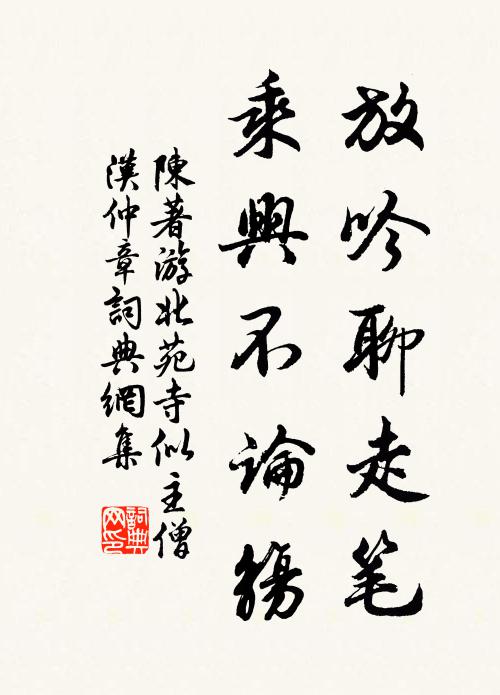 放吟聊走笔
乘興不論觴
陳著游北苑寺似主僧
漢仲章詞典網集
詞典網印